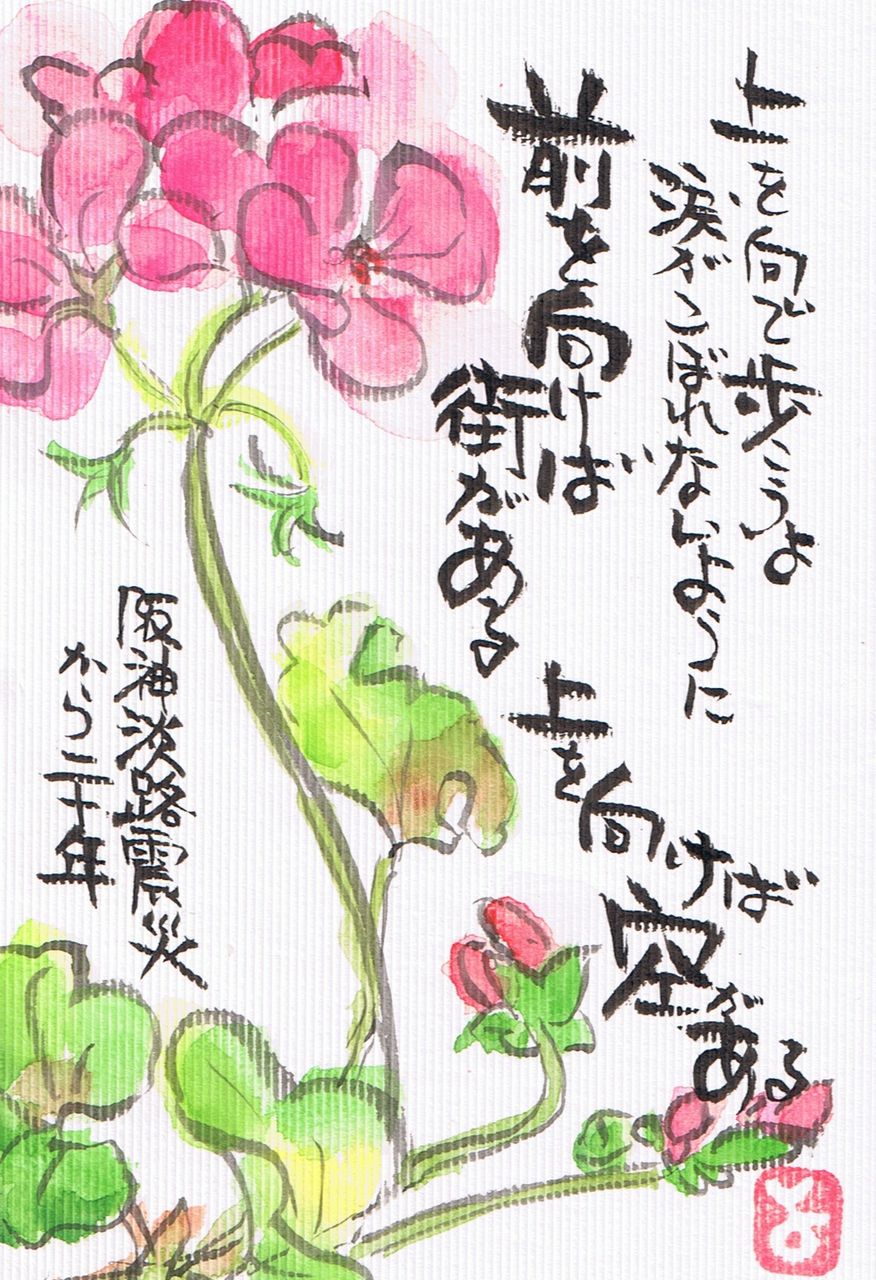 上を向て歩こうよ
涙がこぼれないように
前を向けば
街がある
上を向けば
空がある
阪神淡路震災
から二十年
とよ